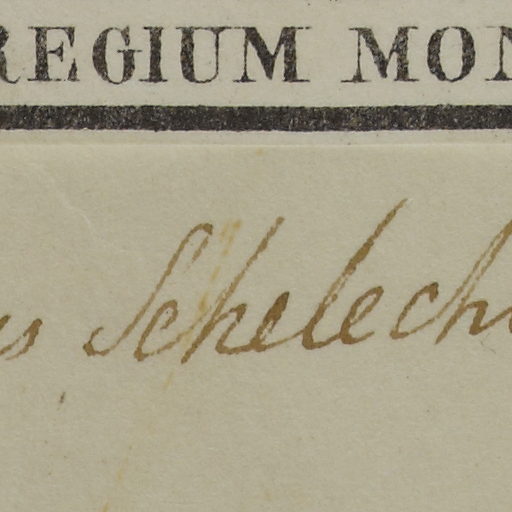 REGIUM MON
us Schelech